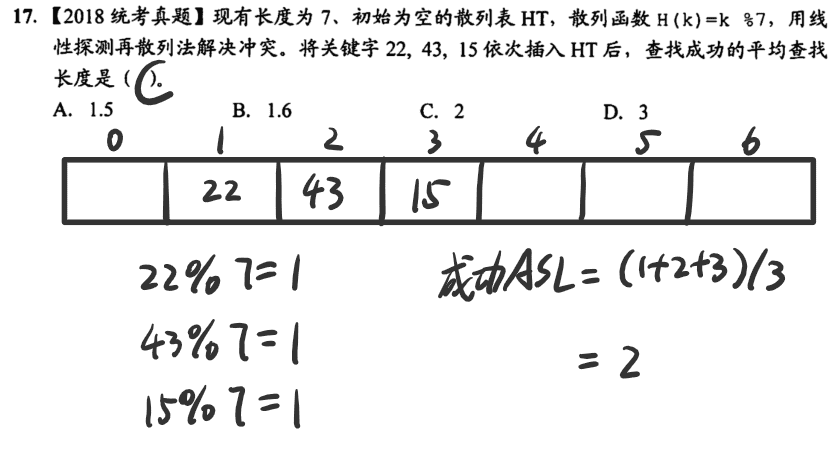 17.【2018 统考真题】现有长度为 7、初始为空的散列表 HT，散列函数 H(k)=k %7，用线
性探测再散列法解决冲突。将关键字 22, 43, 15 依次插入 HT 后，查找成功的平均查找
长度是（C）。
A. 1.5 B. 1.6 C. 2 D. 3
0 1 2 3 4 5 6
22 43 15
22%7=1 成功ASL=(1+2+3)/3
43%7=1 =2
15%7=1